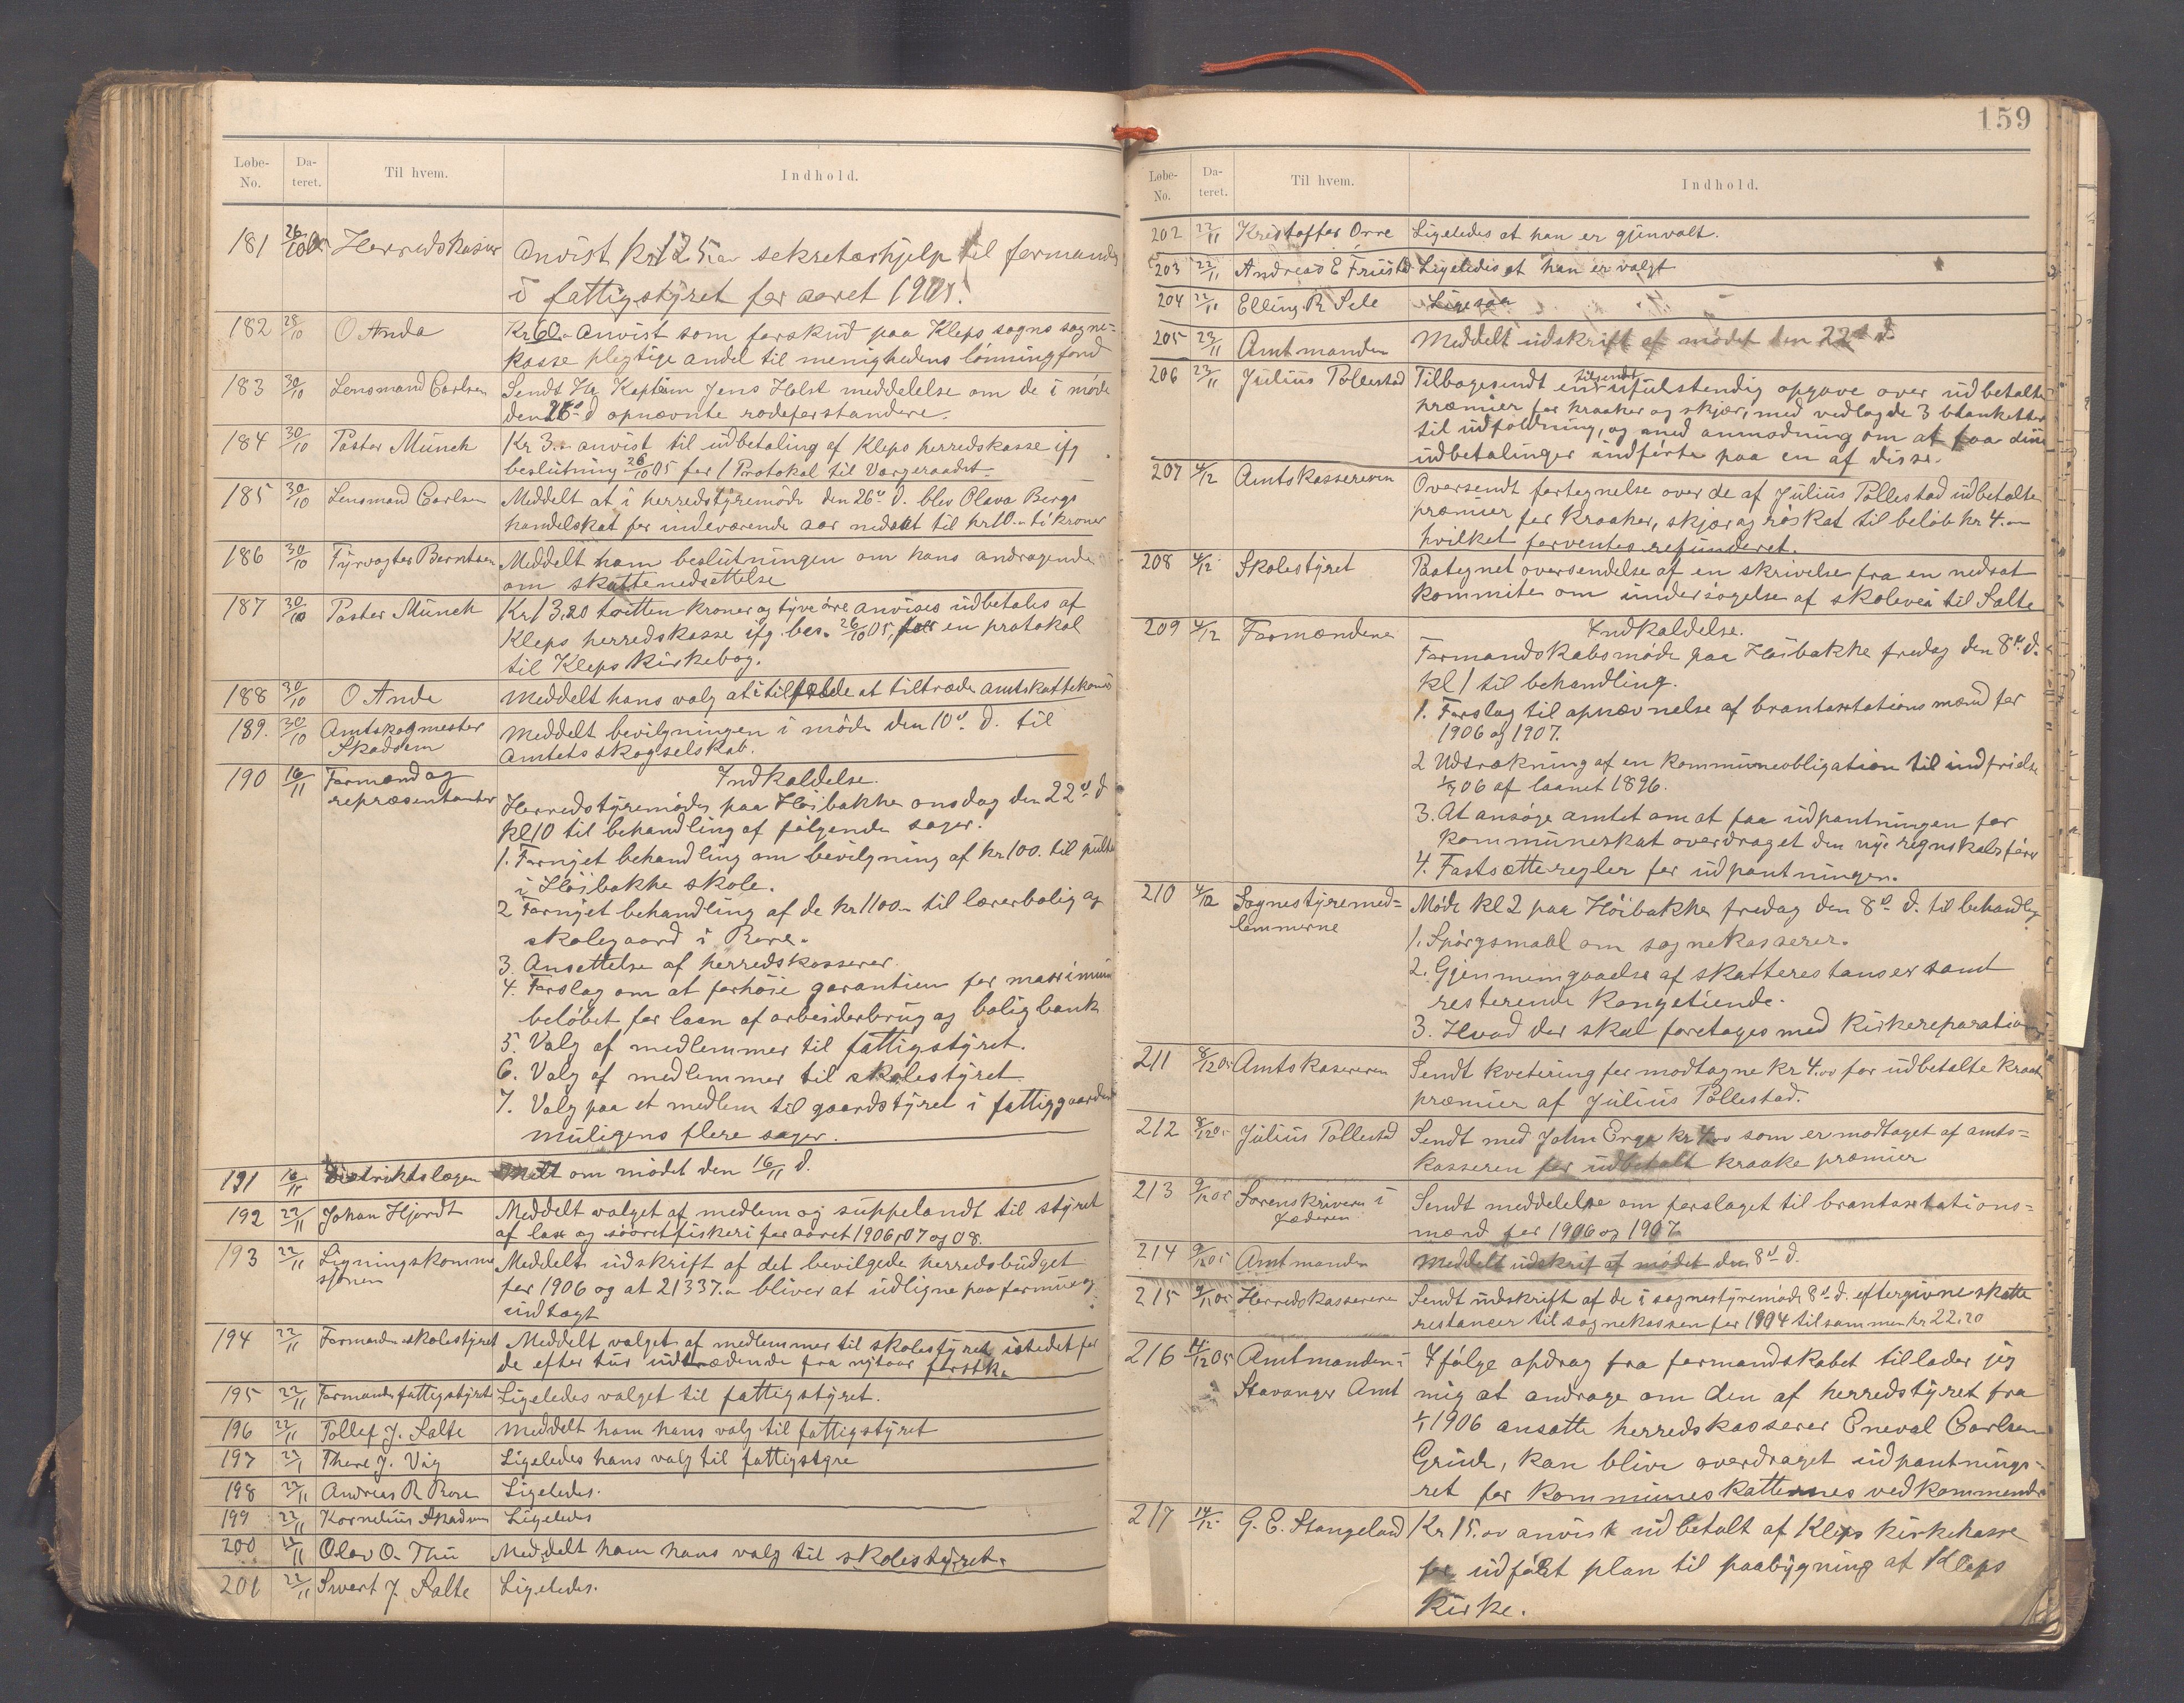 Løbe-No. Da-teret. Til hvem. Indhold.
181 26/10 05 Herredskasser Anvist kr 125.00 sekretærhjelp til formanden
i fattigstyret for aaret 1905.
182 28/10 O Anda Kr 60.- Anvist som forskud paa Kleps sogns sogne=
kasse plegtige andel til menighedens lønningfond
183 30/10 Lensmand Carlsen Sendt Hr. Kaptein Jens Holst meddelelse om de i møde
den 26de d opnævnte rodeforstandere.
184 30/10 Pastor Münch Kr 3.- anvist til udbetaling af Kleps herredskasse ifg
beslutning 26/10 05 for 1 Protokol til Vergeraadet.
185 30/10 Lensmand Carlsen Meddelt at i herredstyremøde den 26de d. blev Olava Bergs
handelskat for indeværende aar nedsat til kr 10.- ti kroner
186 30/10 Fyrvogter Berntsen Meddelt ham beslutningen om hans andragende
om skattenedsettelse
187 30/10 Pastor Münch Kr 13,20 tretten kroner og tyve øre anvises udbetales af
Kleps herredskasse ifg. bes. 26/10 05, for en protokol
til Kleps kirkebog.
188 30/10 O Anda Meddelt hans valg at i tilfælde at tiltræde amtskattekomis
189. 30/10 Amtskogmester Skadsem Meddelt bevilgningen i møde den 10de d. til
Amtets skogselskab.
190 16/11 Formænd og repræsentanter Indkaldelse.
Herredstyremøde paa Høibakke onsdag den 22de d
kl 10 til behandling af følgende sager.
1. Fornyet behandling om bevilgning af kr 100. til pulte
i Høibakke skole.
2 Fornyet behandling af de kr 1100.- til lærerbolig og
skolegaard i Bore.
3. Ansettelse af herredskasserer
4. Forslag om at forhøie garantien for maximum
beløbet for laan af arbeiderbrug og boligbank
5. Valg af medlemmer til fattigstyret.
6. Valg af medlemmer til skolestyret.
7. Valg paa et medlem til gaardstyret i fattiggaarden
muligens flere sager.
191 16/11 Distriktslægen Meldt om mødet den 16/11 d.
192 22/11 Johan Hjordt Meddelt valget af medlem og suppelandt til styret
af lax og søøretfiskeri for aaret 1906, 07 og 08.
193 22/11 Ligningskommi sjonen Meddelt udskrift af det bevilgede herredsbudget
for 1906 og at 21337.00 bliver at udligne paa formue og
indtægt
194 22/11 Formanden skolestyret Meddelt valget af medlemmer til skolestyret istedet for
de efter tur udtrædende fra nytaar førstk.
195 22/11 Formanden fattigstyret Ligeledes valget til fattigstyret.
196 22/11 Tollef J. Salte Meddelt ham hans valg til fattigstyret
197 22/11 Thore J. Vig Ligeledes hans valg til fattigstyre
198 22/11 Andreas R Bore Ligeledes.
199 22/11 Kornelius Skadsem Ligeledes
200 22/11 Olav O. Thu Meddelt ham hans valg til skolestyret.
201 22/11 Sivert J. Salte Ligeledes.
159
Løbe-No. Da-teret. Til hvem. Indhold.
202 22/11 Kristoffer Orre Ligeledes at han er gjenvalt.
203 22/11 Andreas E Friestad Ligeledes at han er valgt
204 22/11 Elling R Sele Ligesaa
205 23/11 Amtmanden Meddelt udskrift af mødet den 22de d.
206 23/11 Julius Pollestad Tilbagesendt en tilsendt ufulstendig opgave over udbetalte
præmier for kraaker og skjær, med vedlagde 3 blanketter
til udfoldning, og med anmodning om at faa dine
udbetalinger indførte paa en af disse.
207 4/12 Amtskassereren Oversendt fortegnelse over de af Julius Pollestad udbetalte
præmier for kraaker, skjær og røskat til beløb kr 4.00
hvilket forventes refunderet.
208 4/12 Skolestyret Paategnet oversendelse af en skrivelse fra en nedsat
kommite om undersøgelse af skolevei til Salte
209 4/12 Formændene Indkaldelse.
Formandskabsmøde paa Høibakke fredag den 8de d.
kl 1 til behandling.
1. Forslag til opnævnelse af brantaxtationsmænd for
1906 og 1907.
2 Udtrækning af en kommuneobligation til indfrielse
06 af laanet 1896.
3. At ansøge amtet om at faa udpantningen for
kommuneskat overdraget den nye regnskabsfører
4. Fastsætte regler for udpantningen.
210 4/12 Sognestyremed= lemmerne Møde kl 2 paa Høibakke fredag den 8de d. til behandling
1. Spørgsmaal om sognekasserer.
2. Gjennemgaaelse af skatterestanser samt
resterende Kongetiende.
3. Hvad der skal foretages med kirkereparation
211 8/12 05 Amtskasereren Sendt kvetering for modtagne kr 4.00 for udbetalte kraake
præmier af Julius Pollestad.
212 8/12 05 Julius Pollestad Sendt med John Erga kr 4.00 som er modtaget af amts=
kasseren for udbetalt kraake præmier
213 9/12 05 Sorenskriveren i Jæderen Sendt meddelelse om forslaget til brantaxtations=
mænd for 1906 og 1907
214 9/12 05 Amtmanden Meddelt udskrift af mødet den 8de d.
215 9/12 05 Herredskassereren Sendt udskrift af de i sognestyremøde 8de d. eftergivne skatte
restancer til sognekassen for 1904 tilsammen kr 22.20
216 14/12 05 Amtmanden i Stavanger Amt Ifølge opdrag fra formandskabet tillader jeg
mig at andrage om den af herredstyret fra
1/1 1906 ansatte herredskasserer Eneval Carlsen
Grude, kan blive overdraget udpantnings=
ret for kommuneskatternes vedkommende
217 14/12 G. E. Stangeland Kr 15.00 anvist udbetalt af Kleps kirkekasse
for udført plan til paabygning af Kleps
Kirke.